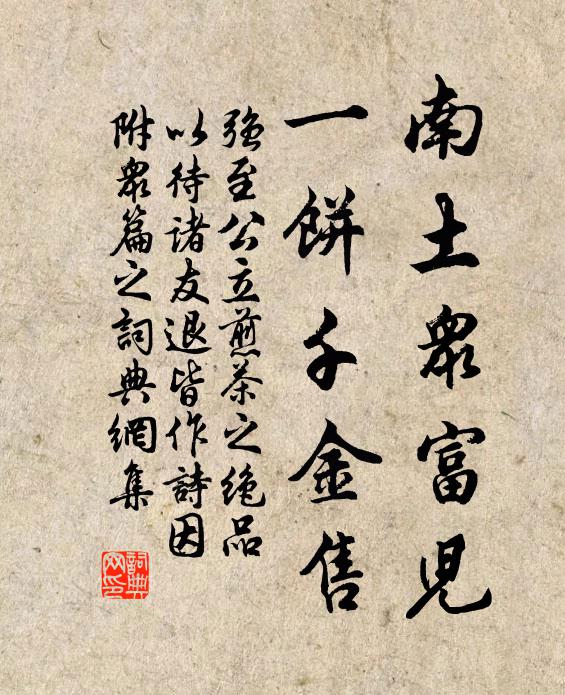 南土眾富児
一餅千金售
強至公立煎茶之絶品
以待諸友退皆作詩因
附眾篇之詞典網集
詞典
网印